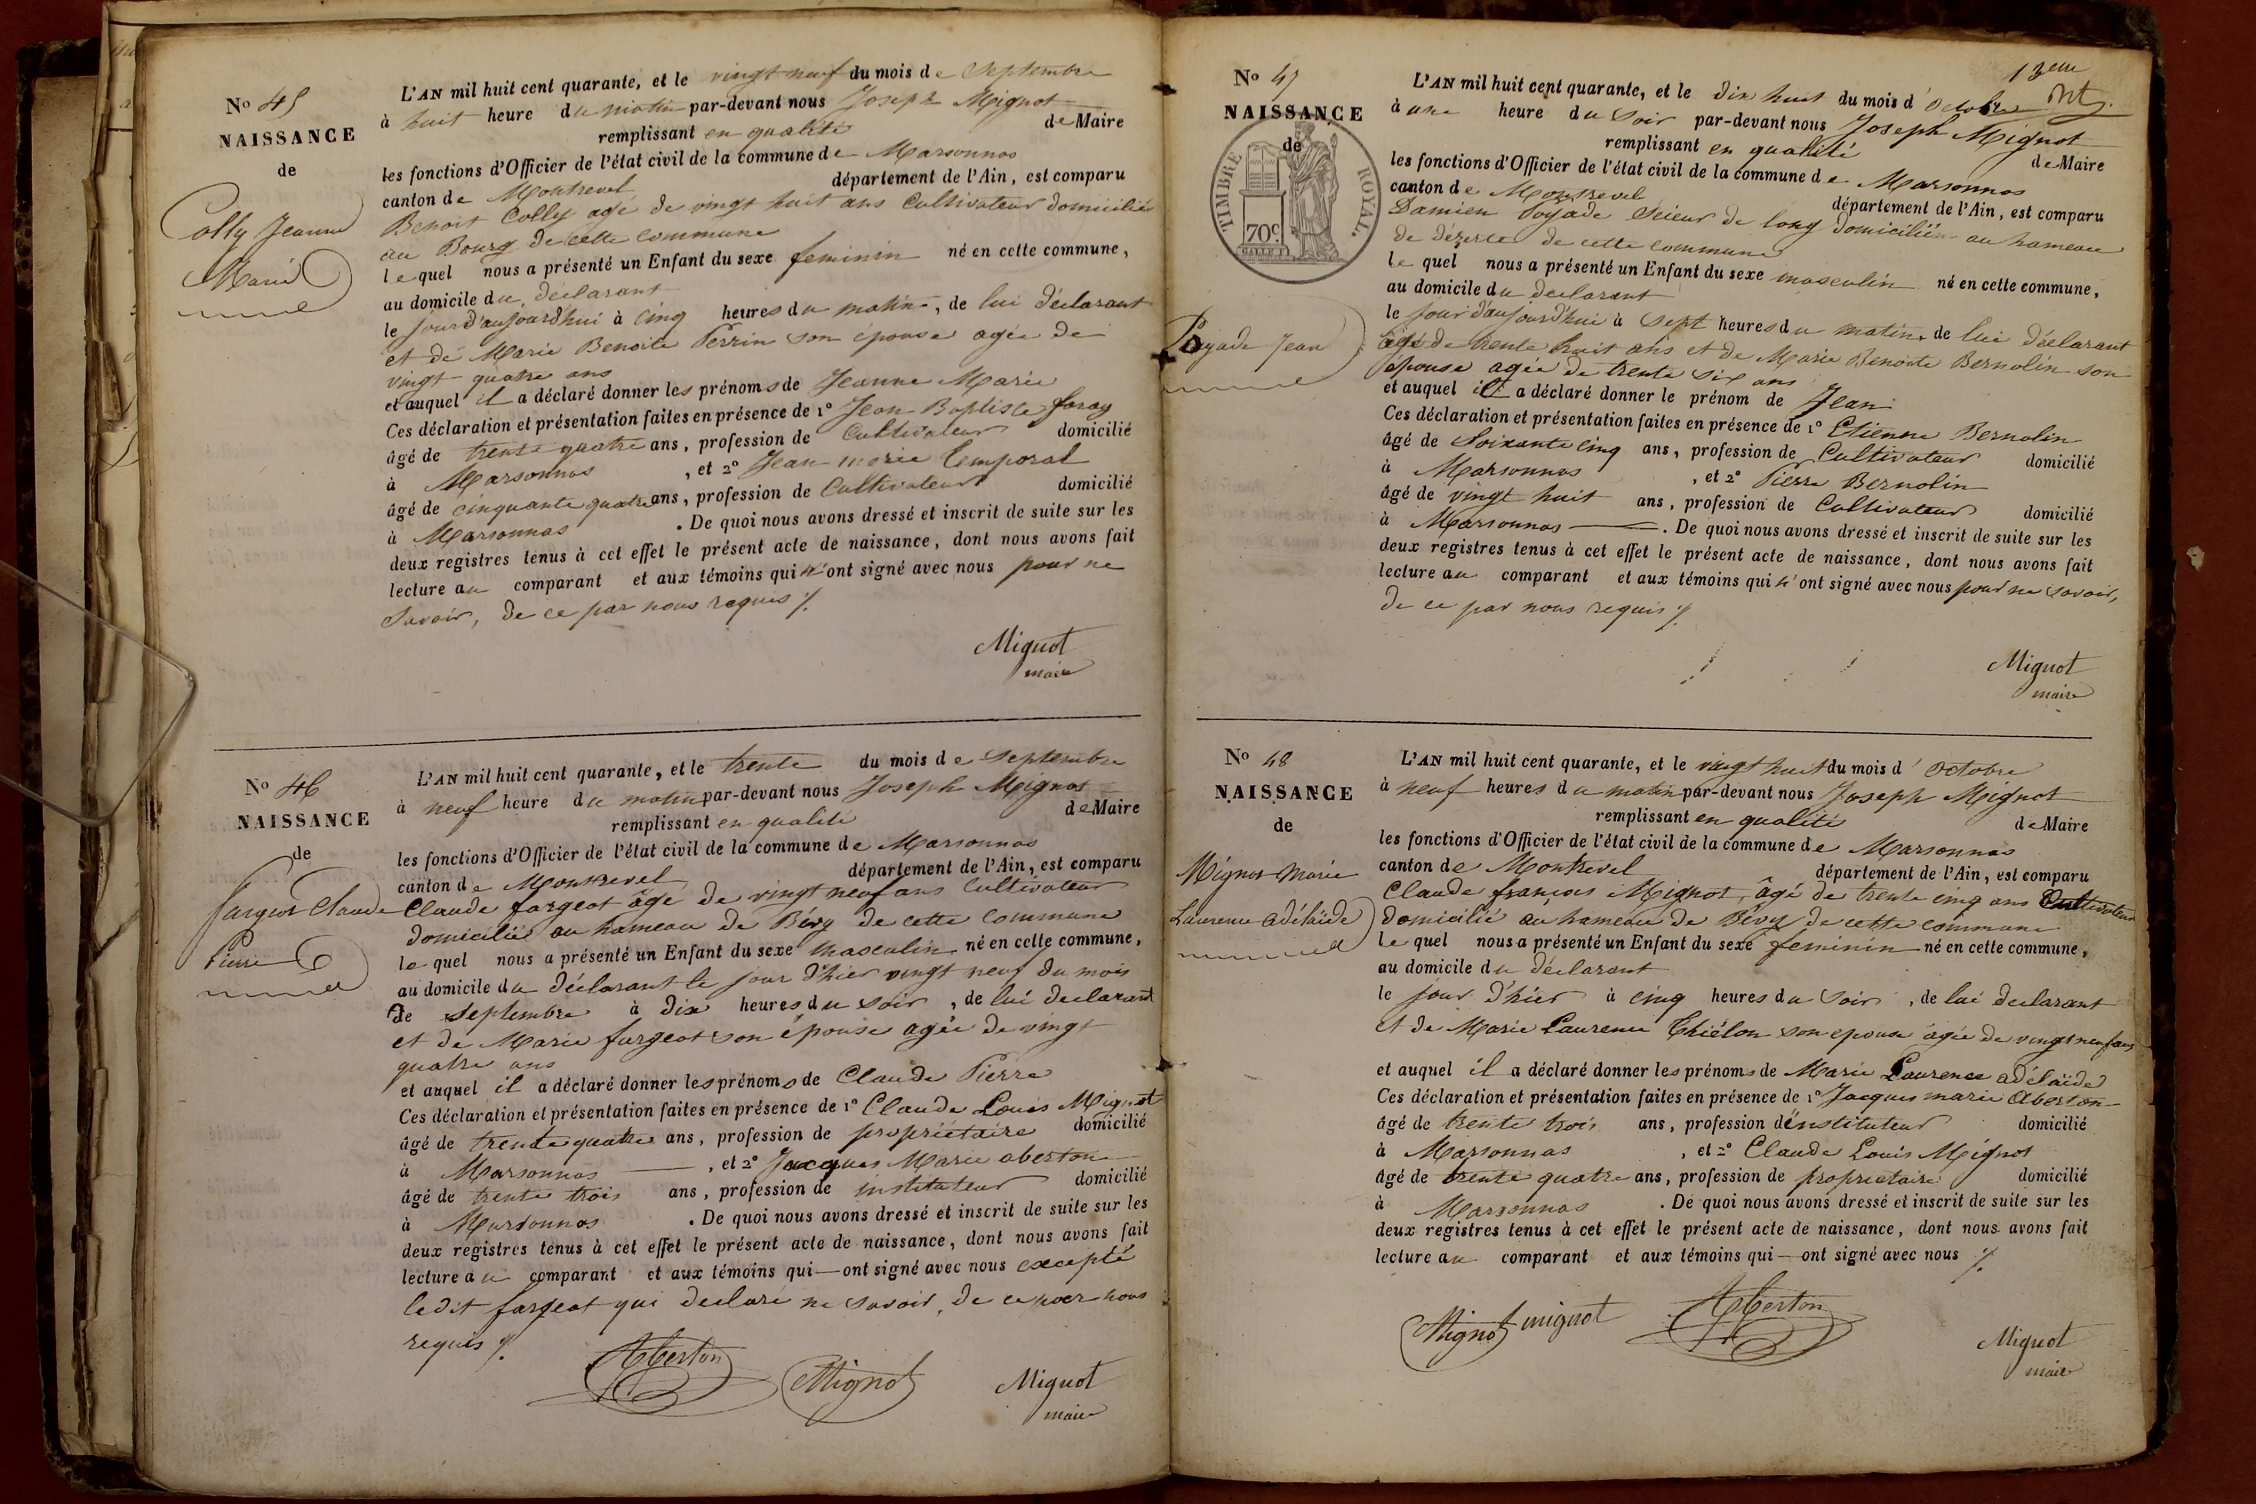 No 45
NAISSANCE
de
Colly Jeanne
Marie
L'AN mil huit cent quarante, et le vingt neuf du mois de Septembre
à huit heure du matin par-devant nous Joseph Mignot
remplissant en qualité de Maire
les fonctions d'Officier de l'état civil de la commune de Marsonnas
canton de Montrevel département de l'Ain, est comparu
Benoit Colly agé de vingt huit ans Cultivateur domicilié
au Bourg de cette commune
lequel nous a présenté un Enfant du sexe feminin né en cette commune,
au domicile du déclarant
le jour d'aujourd'hui à cinq heures du matin, de lui déclarant
et de Marie Benoite Perrin son épouse agée de
vingt quatre ans
et auquel il a déclaré donner les prénoms de Jeanne Marie
Ces déclaration et présentation faites en présence de 1º Jean Baptiste foray
âgé de trente quatre ans, profession de Cultivateur domicilié
à Marsonnas, et 2º Jean marie Temporal
âgé de cinquante quatre ans, profession de Cultivateur domicilié
à Marsonnas. De quoi nous avons dressé et inscrit de suite sur les
deux registres tenus à cet effet le présent acte de naissance, dont nous avons fait
lecture au comparant et aux témoins qui n'ont signé avec nous pour ne
Savoir, de ce par nous requis %.
Mignot
maire
No 46
NAISSANCE
de
fargeot Claude
Pierre
L'AN mil huit cent quarante, et le trente du mois de Septembre
à neuf heure du matin par-devant nous Joseph Mignot
remplissant en qualité de Maire
les fonctions d'Officier de l'état civil de la commune de Marsonnas
canton de Montrevel département de l'Ain, est comparu
Claude fargeot âgé de vingt neuf ans Cultivateur
domicilié au hameau de Bévy de cette commune
lequel nous a présenté un Enfant du sexe masculin né en cette commune,
au domicile du déclarant le jour d'hier vingt neuf du mois
de Septembre à dix heures du soir, de lui declarant
et de Marie fargeot son épouse agée de vingt
quatre ans
et auquel il a déclaré donner les prénoms de Claude Pierre
Ces déclaration et présentation faites en présence de 1º Claude Louis Mignot
âgé de trente quatre ans, profession de propriétaire domicilié
à Marsonnas, et 2º Jacques Marie aberton
âgé de trente trois ans, profession de instituteur domicilié
à Marsonnas. De quoi nous avons dressé et inscrit de suite sur les
deux registres tenus à cet effet le présent acte de naissance, dont nous avons fait
lecture au comparant et aux témoins qui — ont signé avec nous excepté
ledit fargeot qui declaré ne savoir, de ce par nous
requis %.
Aberton Mignot Mignot
maire
13eme
No 47
NAISSANCE
de
TIMBRE ROYAL.
70c
Poyade Jean
L'AN mil huit cent quarante, et le dix huit du mois d'Octobre
à une heure du soir par-devant nous Joseph Mignot
remplissant en qualité de Maire
les fonctions d'Officier de l'état civil de la commune de Marsonnas
canton de Montrevel département de l'Ain, est comparu
Damien Poyade Scieur de long domicilié au hameau
de dézerte de cette commune
lequel nous a présenté un Enfant du sexe masculin né en cette commune,
au domicile du declarant
le jour d'aujourd'hui à sept heures du matin, de lui déclarant
agé de trente huit ans et de Marie Benoite Bernolin son
épouse agée de trente six ans
et auquel il a déclaré donner le prénom de Jean
Ces déclaration et présentation faites en présence de 1º Etienne Bernolin
âgé de Soixante cinq ans, profession de Cultivateur domicilié
à Marsonnas, et 2º Pierre Bernolin
âgé de vingt huit ans, profession de Cultivateur domicilié
à Marsonnas —. De quoi nous avons dressé et inscrit de suite sur les
deux registres tenus à cet effet le présent acte de naissance, dont nous avons fait
lecture au comparant et aux témoins qui n'ont signé avec nous pour ne savoir,
de ce par nous requis %.
Mignot
maire
No 48
NAISSANCE
de
Mignot Marie
Laurence adélaïde
L'AN mil huit cent quarante, et le vingt huit du mois d'Octobre
à neuf heures du matin par-devant nous Joseph Mignot
remplissant en qualité de Maire
les fonctions d'Officier de l'état civil de la commune de Marsonnas
canton de Montrevel département de l'Ain, est comparu
Claude françois Mignot, âgé de trente cinq ans Cultivateur
domicilié au hameau de Bévy de cette commune
lequel nous a présenté un Enfant du sexe feminin né en cette commune,
au domicile du déclarant
le jour d'hier à cinq heures du soir, de lui declarant
et de Marie Laurence Thiélon son epouse agée de vingt neuf ans
et auquel il a déclaré donner les prénoms de Marie Laurence adélaïde
Ces déclaration et présentation faites en présence de 1º Jacques marie Aberton
âgé de trente trois ans, profession d'instituteur domicilié
à Marsonnas, et 2º Claude Louis Mignot
âgé de trente quatre ans, profession de propriétaire domicilié
à Marsonnas. De quoi nous avons dressé et inscrit de suite sur les
deux registres tenus à cet effet le présent acte de naissance, dont nous avons fait
lecture au comparant et aux témoins qui — ont signé avec nous %.
Mignot mignot Aberton
Mignot
maire